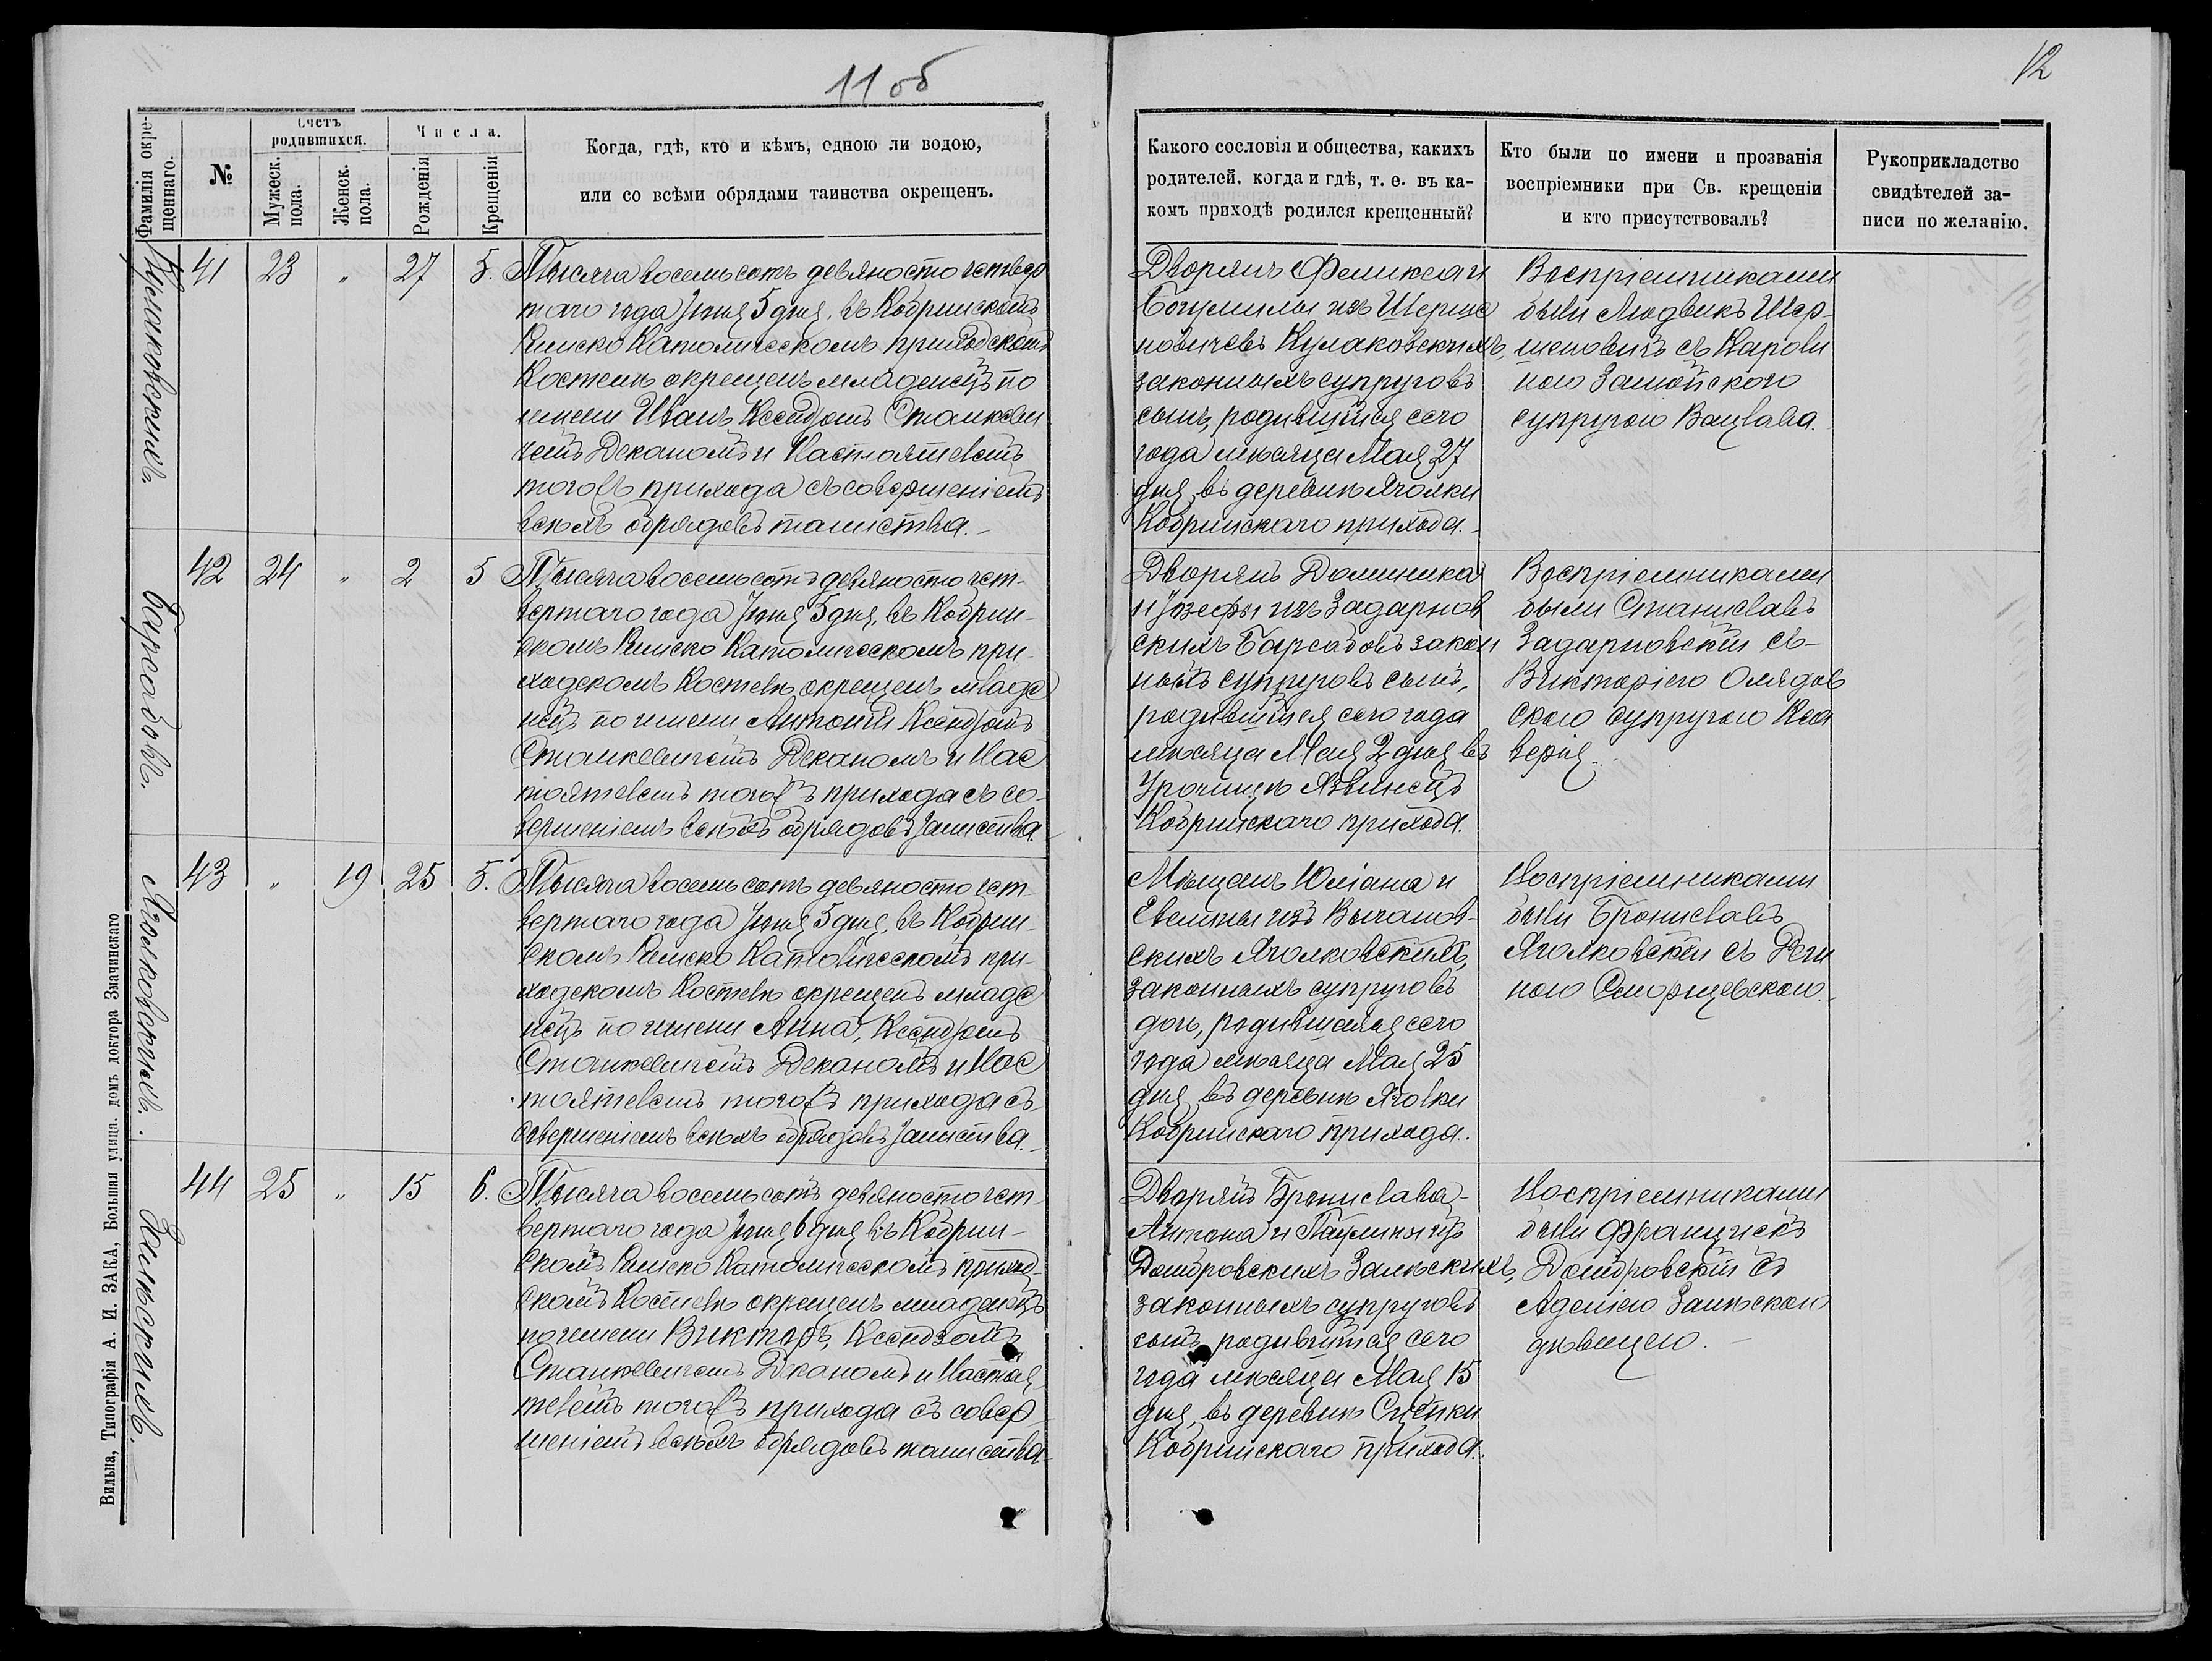 11 об
12
Фамилія окре-
щеннаго.
№
Счетъ
родившихся.
Мужеск.
пола.
Женск.
пола.
Числа.
Рожденія
Крещенія
Когда, гдѣ, кто и кѣмъ, одною ли водою,
или со всѣми обрядами таинства окрещенъ.
Какого сословія и общества, какихъ
родителей, когда и гдѣ, т. е. въ ка-
комъ приходѣ родился крещенный?
Кто были по имени и прозванія
воспріемники при Св. крещеніи
и кто присутствовалъ?
Рукоприкладство
свидѣтелей за-
писи по желанію.
Кулаковскихъ.
41 23 „ 27 5.
Тысяча восемьсотъ девяносто четвер
таго года Іюня 5 дня, въ Кобринскомъ
Римско Католическомъ приходскомъ
Костелѣ окрещенъ младенецъ по
имени Иванъ, Ксендзомъ Станкеви
чемъ Деканомъ и Настоятелемъ
тогожъ прихода съ совершеніемъ
всѣхъ обрядовъ таинства.
Дворянъ Феликса и
Богумилы изъ Шерше
новичевъ Кулаковскихъ,
законныхъ супруговъ
сынъ, родившійся сего
года мѣсяца Мая 27
дня, въ деревнѣ Яголки
Кобринскаго прихода.
Воспріемниками
были Людвикъ Шер-
шеновичъ съ Кароли
ною Замойскою
супругою Вацлава.
Барсадовъ.
42 24 „ 2 5
Тысяча восемьсотъ девяносто чет-
вертаго года Іюня 5 дня, въ Кобрин-
скомъ Римско Католическомъ при-
ходскомъ Костелѣ окрещенъ младе
нецъ по имени Антоній Ксендзомъ
Станкевичемъ Деканомъ и Нас
тоятелемъ тогожъ прихода съ со-
вершеніемъ всѣхъ обрядовъ таинства.
Дворянъ Доминика
и Іозефы изъ Задарнов
скихъ Барсадовъ закон
ныхъ супруговъ сынъ,
родившійся сего года
мѣсяца Мая 2 дня въ
Урочищѣ
Кобринскаго прихода.
Воспріемниками
были Станиславъ
Задарновскій съ
Викторіею Олядов
скою супругою Кса
верія.
Яголковскихъ.
43 „ 19 25 5.
Тысяча восемьсотъ девяносто чет-
вертаго года Іюня 5 дня, въ Кобрин-
скомъ Римско Католическомъ при-
ходскомъ Костелѣ окрещенъ младе
нецъ по имени Анна, Ксендзомъ
Станкевичемъ Деканомъ и Нас
тоятелемъ тогожъ прихода съ
совершеніемъ всѣхъ обрядовъ таинства.
Мѣщанъ Юліана и
Евелины изъ Вычанов-
скихъ Яголковскихъ,
законныхъ супруговъ
дочь, родившаяся сего
года мѣсяца Мая 25
дня, въ деревнѣ Яголки
Кобринскаго прихода.
Воспріемниками
были Брониславъ
Яголковскій съ Реги
ною
Залѣскихъ.
44 25 „ 15 6.
Тысяча восемьсотъ девяносто чет-
вертаго года Іюня 6 дня въ Кобрин-
скомъ Римско Католическомъ приход-
скомъ Костелѣ окрещенъ младенецъ
по имени Викторъ, Ксендзомъ
Станкевичемъ Деканомъ и Настоя-
телемъ тогожъ прихода съ совер-
шеніемъ всѣхъ обрядовъ таинства.
Дворянъ Бронислава-
Антона и Паулины изъ
Домбровскихъ Залѣскихъ,
законныхъ супруговъ
сынъ, родившійся сего
года мѣсяца Мая 15
дня, въ деревнѣ
Кобринскаго прихода.
Воспріемниками
были Францискъ
Домбровскій съ
Аделіею Залѣскою
дѣвицею.
Вильна, Типографія А. И. ЗАКА, Большая улица, домъ доктора Змачинскаго